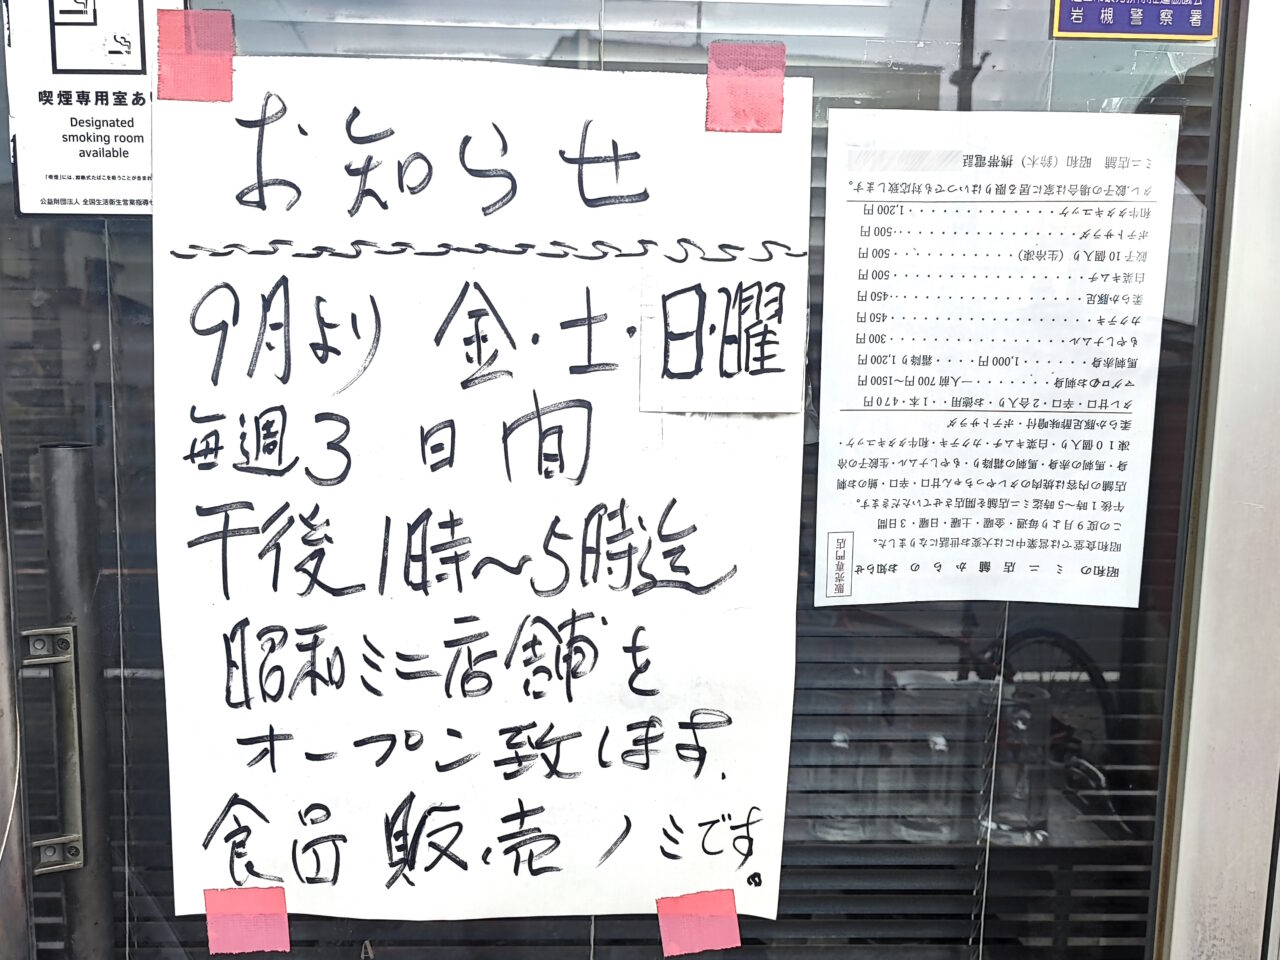 喫煙専用室あり
Designated
smoking room
available
公益財団法人 全国生活衛生営業指導セ
岩槻警察署
お知らせ
9月より 金・土・日・曜
毎週3日間
午後1時〜5時迄
昭和ミニ店舗を
オープン致します.
食品販売ノミです。
昭和のミニ店舗からのお知らせ
販売専門店
昭和食堂では営業中には大変お世話になりました。
この度9月より毎週・金曜・土曜・日曜・3日間
午後1時〜5時迄ミニ店舗を開店させていただきます。
店舗の内容は焼肉のタレやっちゃん甘口・辛口・鮪のお刺
身・馬刺の赤身・馬刺の霜降り・もやしナムル・生の餃子の冷
凍10個入り・白菜キムチ・カクテキ・和牛タタキユッケ・
柔らか豚足酢味噌付・ポテトサラダ
タレ甘口・辛口・2合入り・お徳用・・1本・470円
マグロのお刺身・・・・・・・・一人前700円〜1500円
馬刺赤身・・・・・1,000円・・・・霜降り1,200円
もやしナムル・・・・・・・・・・・・・・・・300円
カクテキ・・・・・・・・・・・・・・・・・・450円
柔らか豚足・・・・・・・・・・・・・・・・・450円
白菜キムチ・・・・・・・・・・・・・・・・・500円
餃子10個入り(生冷凍)・・・・・・・・・・・500円
ポテトサラダ・・・・・・・・・・・・・・・・500円
和牛タタキユッケ・・・・・・・・・・・・・・1,200円
タレ.餃子の場合は家に居る限りはいつでも対応致します。
ミニ店舗 昭和(鈴木)携帯電話